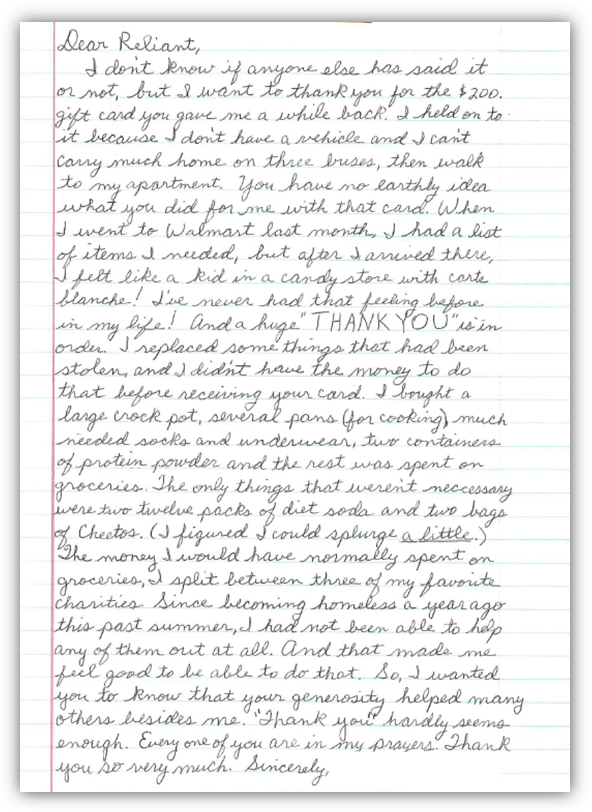 Dear Reliant,
I don't know if anyone else has said it
or not, but I want to thank you for the $200.
gift card you gave me a while back. I held on to
it because I don't have a vehicle and I can't
carry much home on three buses, then walk
to my apartment. You have no earthly idea
what you did for me with that card. When
I went to Walmart last month, I had a list
of items I needed, but after I arrived there,
I felt like a kid in a candy store with carte
blanche! I've never had that feeling before
in my life! And a huge "THANK YOU" is in
order. I replaced some things that had been
stolen, and I didn't have the money to do
that before receiving your card. I bought a
large crock pot, several pans (for cooking), much
needed socks and underwear, two containers
of protein powder and the rest was spent on
groceries. The only things that weren't neccessary
were two twelve packs of diet soda and two bags
of Cheetos. (I figured I could splurge a little.)
The money I would have normally spent on
groceries, I split between three of my favorite
charities. Since becoming homeless a year ago
this past summer, I had not been able to help
any of them out at all. And that made me
feel good to be able to do that. So, I wanted
you to know that your generosity helped many
others besides me. "Thank you" hardly seems
enough. Every one of you are in my prayers. Thank
you so very much. Sincerely,